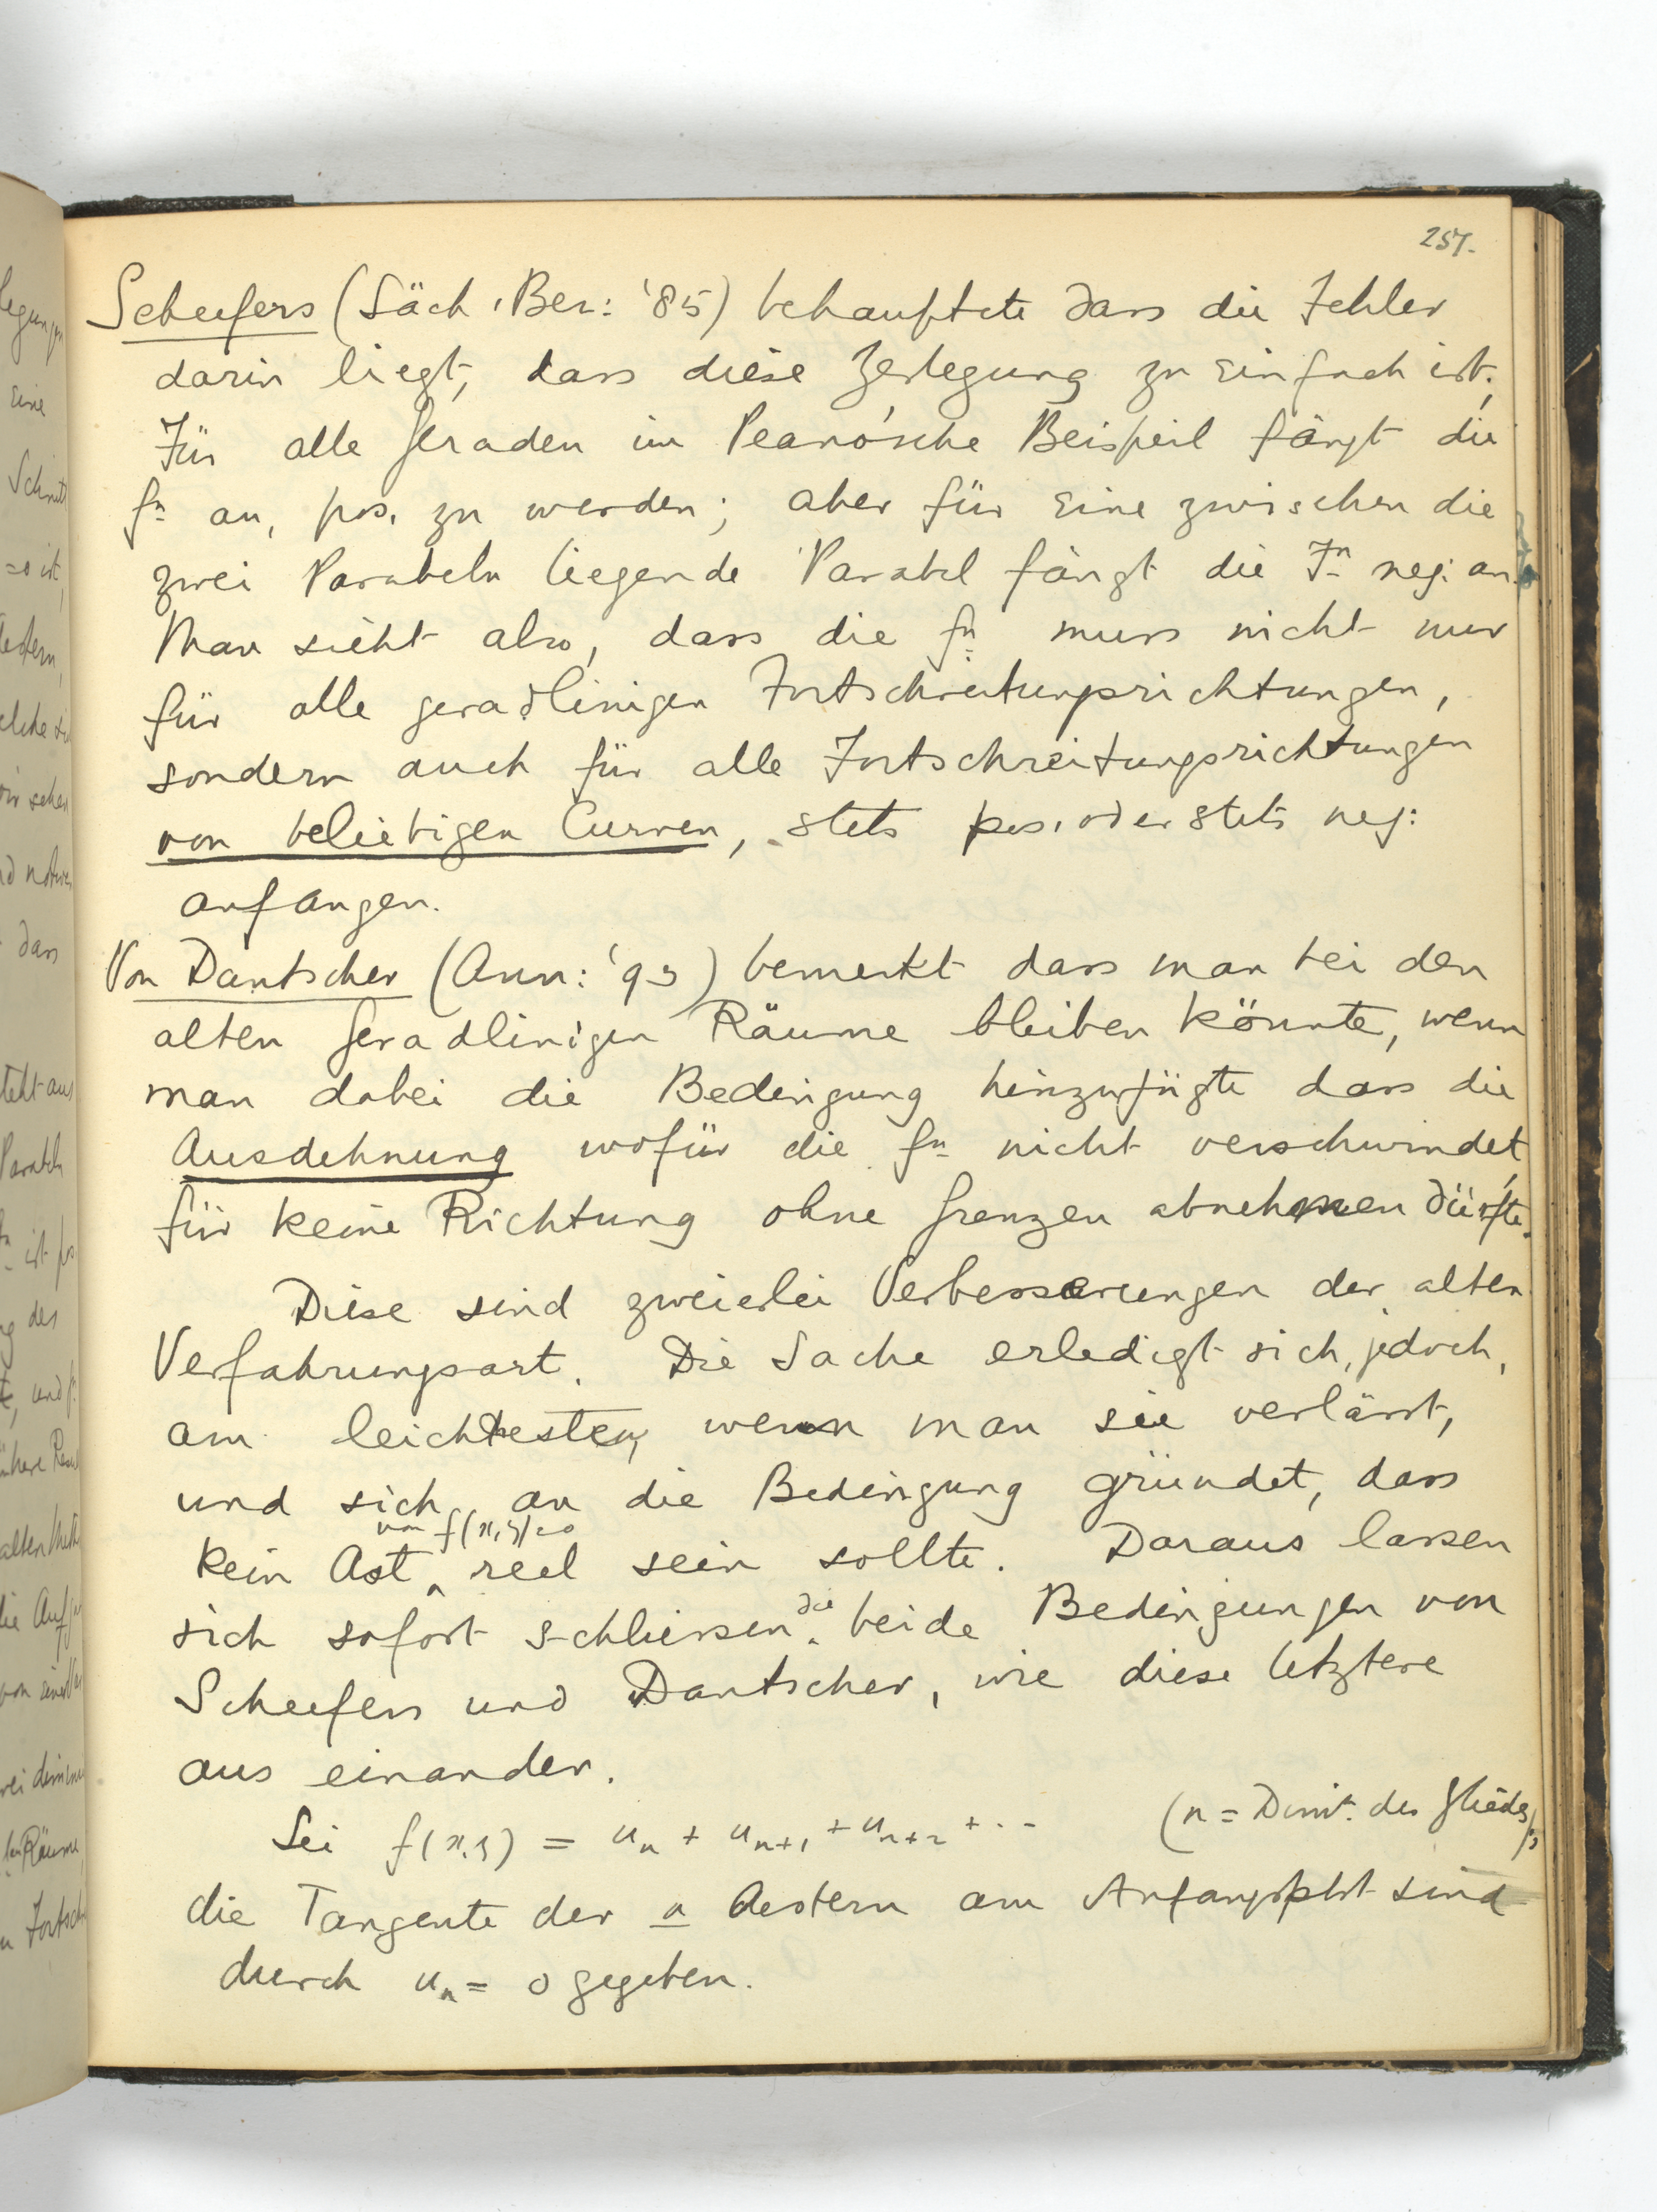 257.
Scheefers (Säch. Ber: '85) behauftete dass die Fehler
darin liegt, dass diese Zerlegung zu einfach ist;
Für alle Geraden im Peano'sche Beispeil fängt die
fn an, pos. zu werden; aber für eine zwischen die
zwei Parabeln liegende Parabel fängt die Fn neg. an.
Man sieht also, dass die fn muss nicht nur
für alle geradlinigen Fortschreitungsrichtungen,
sondern auch für alle Fortschreitungsrichtungen
von beliebigen Curven, stets pos. oder stets neg:
anfangen.
Von Dantscher (Ann: '93) bemerkt dass man bei den
alten geradlinigen Räume bleiben könnte, wenn
man dabei die Bedingung hinzufügte dass die
Ausdehnung wofür die fn nicht verschwindet,
für keine Richtung ohne Grenzen abnehmen dürfte.
Diese sind zweierlei Verbesserungen der alten
Verfahrungsart. Die Sache erledigt sich, jedoch,
am leichtesten, wenn man sie verlässt,
und sich an die Bedingung gründet, dass
kein Ast von f(x,y)=0 reel sein sollte. Daraus lassen
sich sofort schliessen die beide Bedingungen von
Scheefers und Dantscher, wie diese letztere
aus einander.
Sei f(x,y) = u_n + u_{n+1} + u_{n+2} + .. (n = Dimn. des Gliedes);
die Tangente der n Aestern am Anfangspkt sind
durch u_n = 0 gegeben.